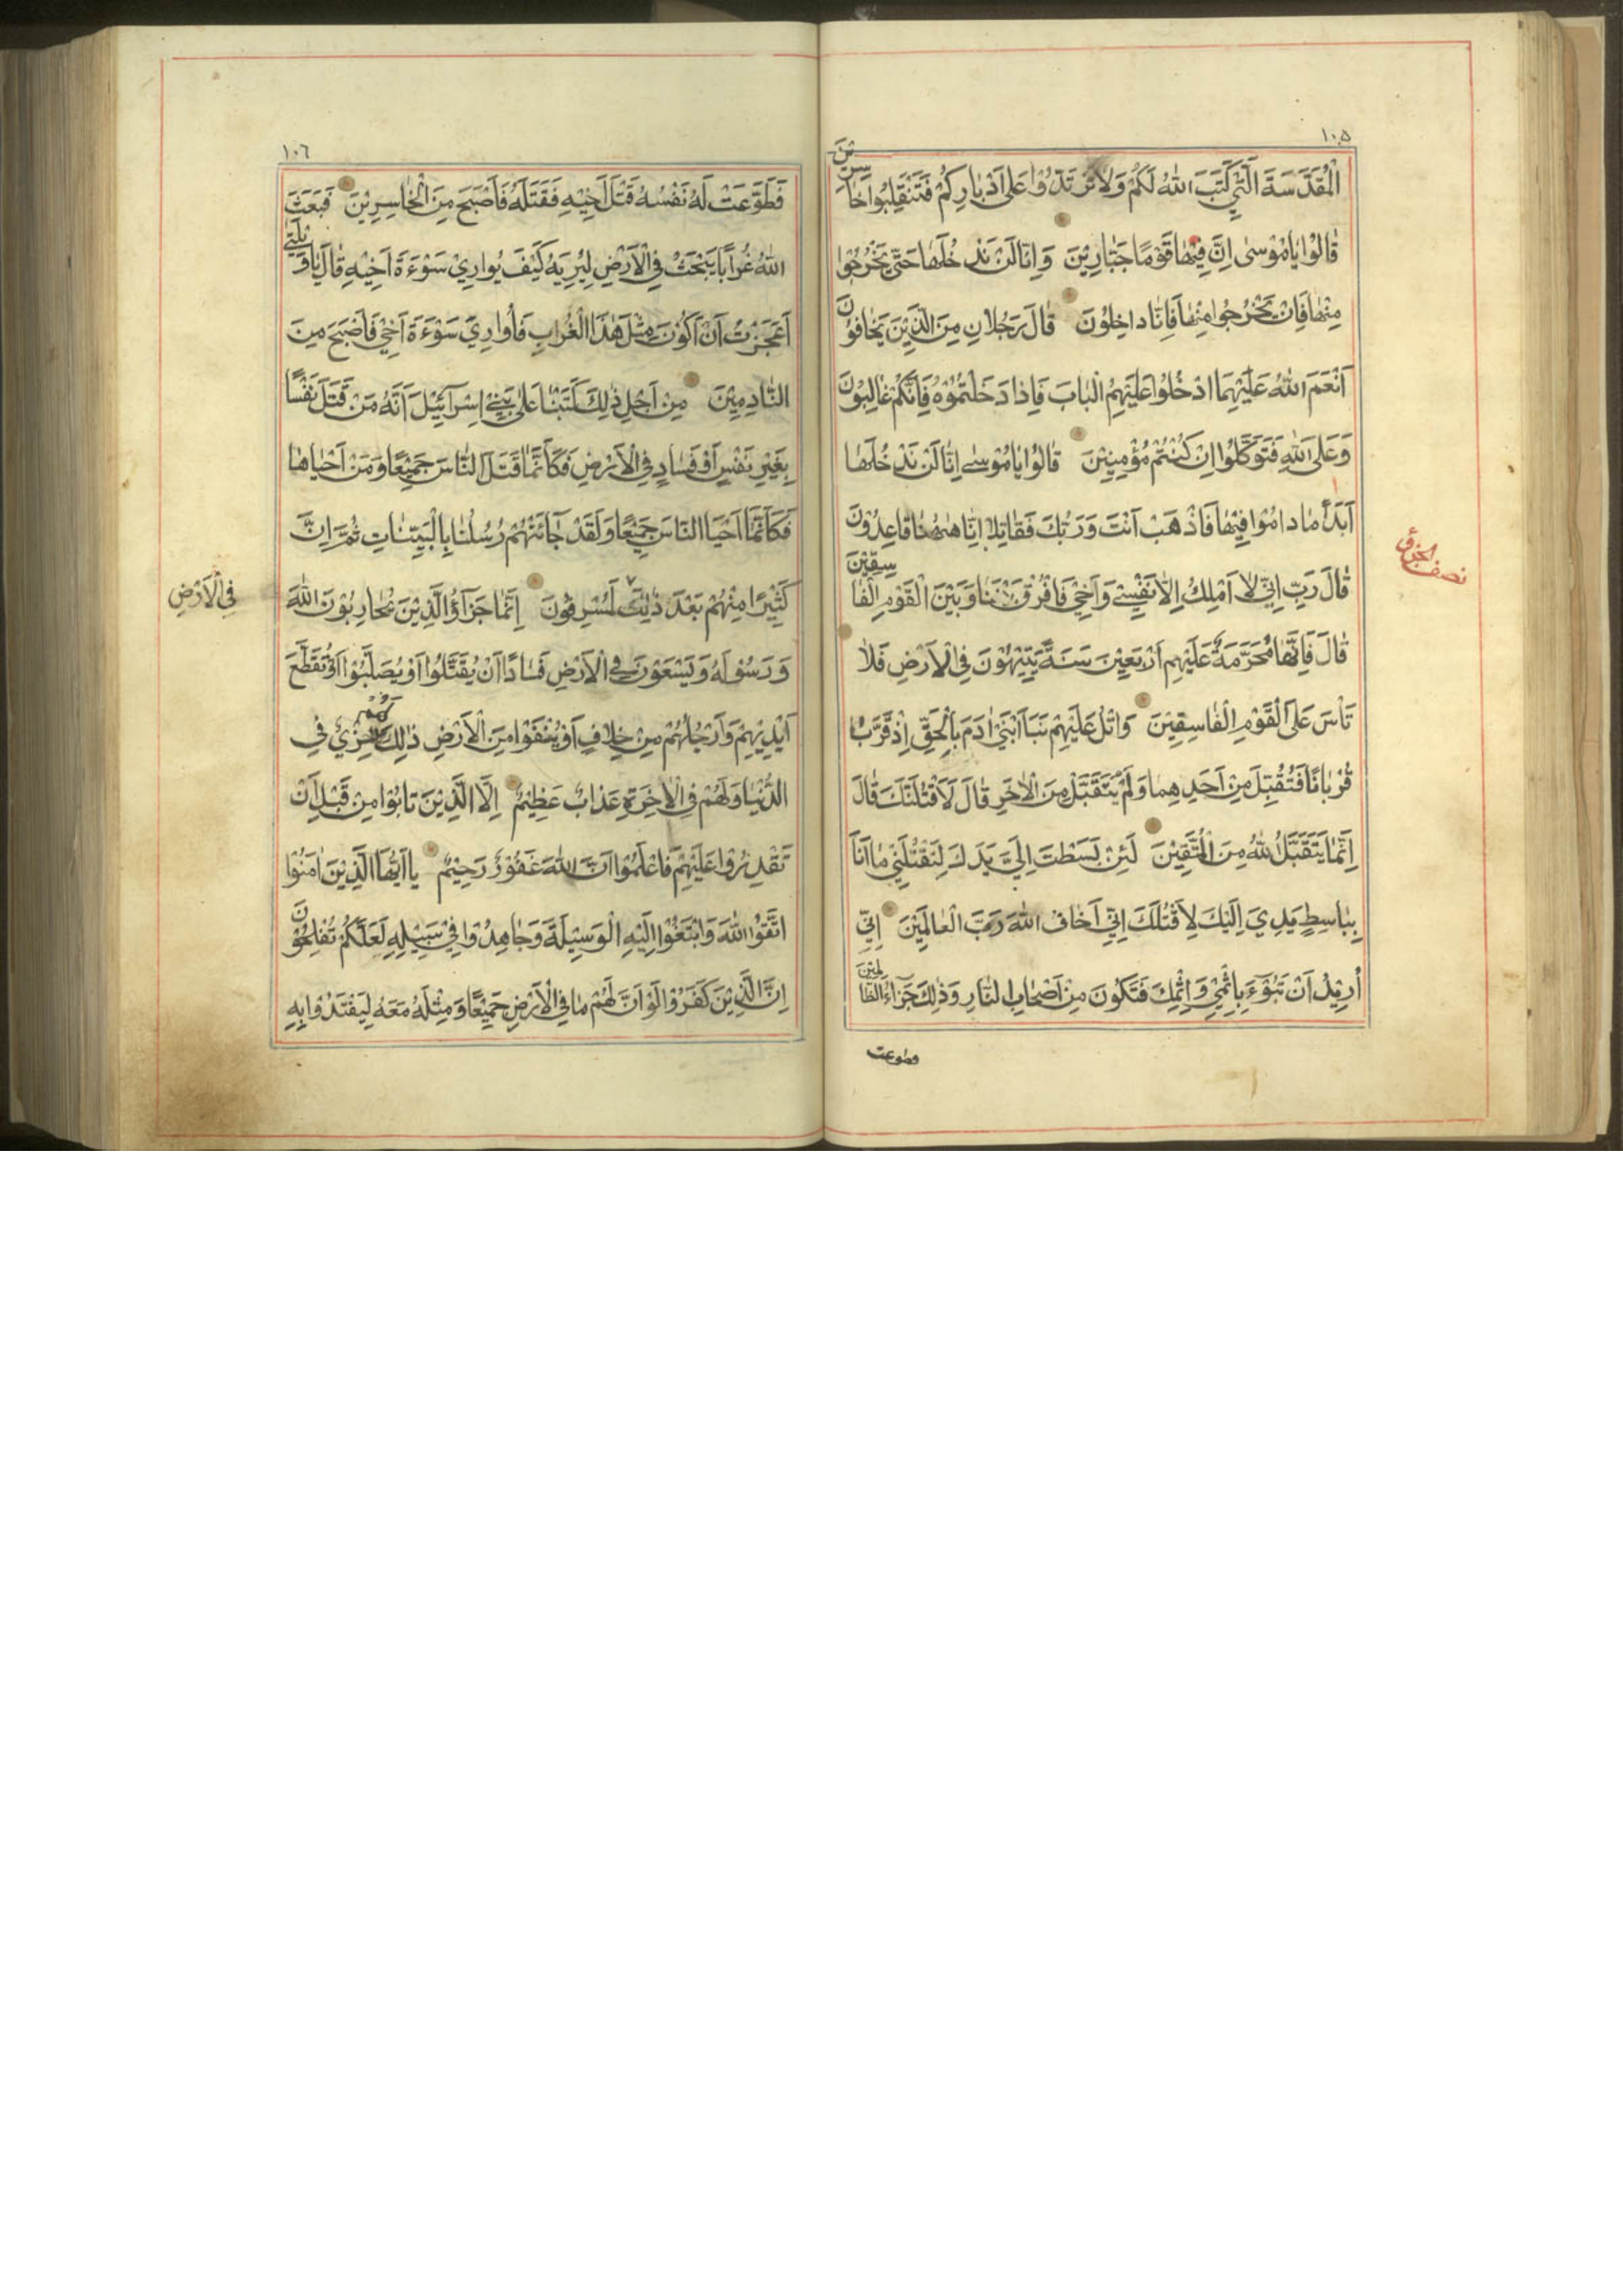 ١٠٥
الْمُقَدَّسَةَ الَّتِي كَتَبَ اللهُ لَكُمْ وَلَا تَرْتَدُّوْا عَلٰى اَدْبَارِكُمْ فَتَنْقَلِبُوا خَاسِرِيْنَ
قَالُوْا يَامُوْسٰى اِنَّ فِيْهَا قَوْمًا جَبَّارِيْنَ وَاِنَّا لَنْ نَدْخُلَهَا حَتّٰى يَخْرُجُوْا
مِنْهَا فَاِنْ يَخْرُجُوا مِنْهَا فَاِنَّا دَاخِلُوْنَ قَالَ رَجُلَانِ مِنَ الَّذِيْنَ يَخَافُوْنَ
اَنْعَمَ اللهُ عَلَيْهِمَا ادْخُلُوْا عَلَيْهِمُ الْبَابَ فَاِذَا دَخَلْتُمُوْهُ فَاِنَّكُمْ غَالِبُوْنَ
وَعَلَى اللهِ فَتَوَكَّلُوْا اِنْ كُنْتُمْ مُؤْمِنِيْنَ قَالُوْا يَامُوْسٰى اِنَّا لَنْ نَدْخُلَهَا
اَبَدًا مَا دَامُوْا فِيْهَا فَاذْهَبْ اَنْتَ وَرَبُّكَ فَقَاتِلَا اِنَّا هٰهُنَا قَاعِدُوْنَ
قَالَ رَبِّ اِنِّي لَا اَمْلِكُ اِلَّا نَفْسِيْ وَاَخِيْ فَافْرُقْ بَيْنَنَا وَبَيْنَ الْقَوْمِ الْفَاسِقِيْنَ
نصف الجزؤ
قَالَ فَاِنَّهَا مُحَرَّمَةٌ عَلَيْهِمْ اَرْبَعِيْنَ سَنَةً يَتِيْهُوْنَ فِي الْاَرْضِ فَلَا
تَأْسَ عَلَى الْقَوْمِ الْفَاسِقِيْنَ وَاتْلُ عَلَيْهِمْ نَبَاَ ابْنَيْ اٰدَمَ بِالْحَقِّ اِذْ قَرَّبَا
قُرْبَانًا فَتُقُبِّلَ مِنْ اَحَدِهِمَا وَلَمْ يُتَقَبَّلْ مِنَ الْاٰخَرِ قَالَ لَاَقْتُلَنَّكَ قَالَ
اِنَّمَا يَتَقَبَّلُ اللهُ مِنَ الْمُتَّقِيْنَ لَئِنْ بَسَطْتَ اِلَيَّ يَدَكَ لِتَقْتُلَنِيْ مَا اَنَا
بِبَاسِطٍ يَدِيَ اِلَيْكَ لِاَقْتُلَكَ اِنِّيْ اَخَافُ اللهَ رَبَّ الْعَالَمِيْنَ اِنِّيْ
اُرِيْدُ اَنْ تَبُوْءَ بِاِثْمِيْ وَاِثْمِكَ فَتَكُوْنَ مِنْ اَصْحَابِ النَّارِ وَذٰلِكَ جَزَاءُ الظَّالِمِيْنَ
فطوعت
١٠٦
فَطَوَّعَتْ لَهُ نَفْسُهُ قَتْلَ اَخِيْهِ فَقَتَلَهُ فَاَصْبَحَ مِنَ الْخَاسِرِيْنَ فَبَعَثَ
اللهُ غُرَابًا يَبْحَثُ فِي الْاَرْضِ لِيُرِيَهُ كَيْفَ يُوَارِيْ سَوْءَةَ اَخِيْهِ قَالَ يَاوَيْلَتٰى
اَعَجَزْتُ اَنْ اَكُوْنَ مِثْلَ هٰذَا الْغُرَابِ فَاُوَارِيَ سَوْءَةَ اَخِيْ فَاَصْبَحَ مِنَ
النَّادِمِيْنَ مِنْ اَجْلِ ذٰلِكَ كَتَبْنَا عَلٰى بَنِيْ اِسْرَائِيْلَ اَنَّهُ مَنْ قَتَلَ نَفْسًا
بِغَيْرِ نَفْسٍ اَوْ فَسَادٍ فِي الْاَرْضِ فَكَاَنَّمَا قَتَلَ النَّاسَ جَمِيْعًا وَمَنْ اَحْيَاهَا
فَكَاَنَّمَا اَحْيَا النَّاسَ جَمِيْعًا وَلَقَدْ جَائَتْهُمْ رُسُلُنَا بِالْبَيِّنَاتِ ثُمَّ اِنَّ
كَثِيْرًا مِنْهُمْ بَعْدَ ذٰلِكَ لَمُسْرِفُوْنَ اِنَّمَا جَزَاؤُ الَّذِيْنَ يُحَارِبُوْنَ اللهَ
فِي الْاَرْضِ
وَرَسُوْلَهُ وَيَسْعَوْنَ فِي الْاَرْضِ فَسَادًا اَنْ يُقَتَّلُوْا اَوْ يُصَلَّبُوْا اَوْ تُقَطَّعَ
اَيْدِيْهِمْ وَاَرْجُلُهُمْ مِنْ خِلَافٍ اَوْ يُنْفَوْا مِنَ الْاَرْضِ ذٰلِكَ لَهُمْ خِزْيٌ فِي
الدُّنْيَا وَلَهُمْ فِي الْاٰخِرَةِ عَذَابٌ عَظِيْمٌ اِلَّا الَّذِيْنَ تَابُوْا مِنْ قَبْلِ اَنْ
تَقْدِرُوْا عَلَيْهِمْ فَاعْلَمُوْا اَنَّ اللهَ غَفُوْرٌ رَحِيْمٌ يَا اَيُّهَا الَّذِيْنَ اٰمَنُوْا
اتَّقُوْا اللهَ وَابْتَغُوْا اِلَيْهِ الْوَسِيْلَةَ وَجَاهِدُوْا فِيْ سَبِيْلِهِ لَعَلَّكُمْ تُفْلِحُوْنَ
اِنَّ الَّذِيْنَ كَفَرُوْا لَوْ اَنَّ لَهُمْ مَا فِي الْاَرْضِ جَمِيْعًا وَمِثْلَهُ مَعَهُ لِيَفْتَدُوْا بِهِ